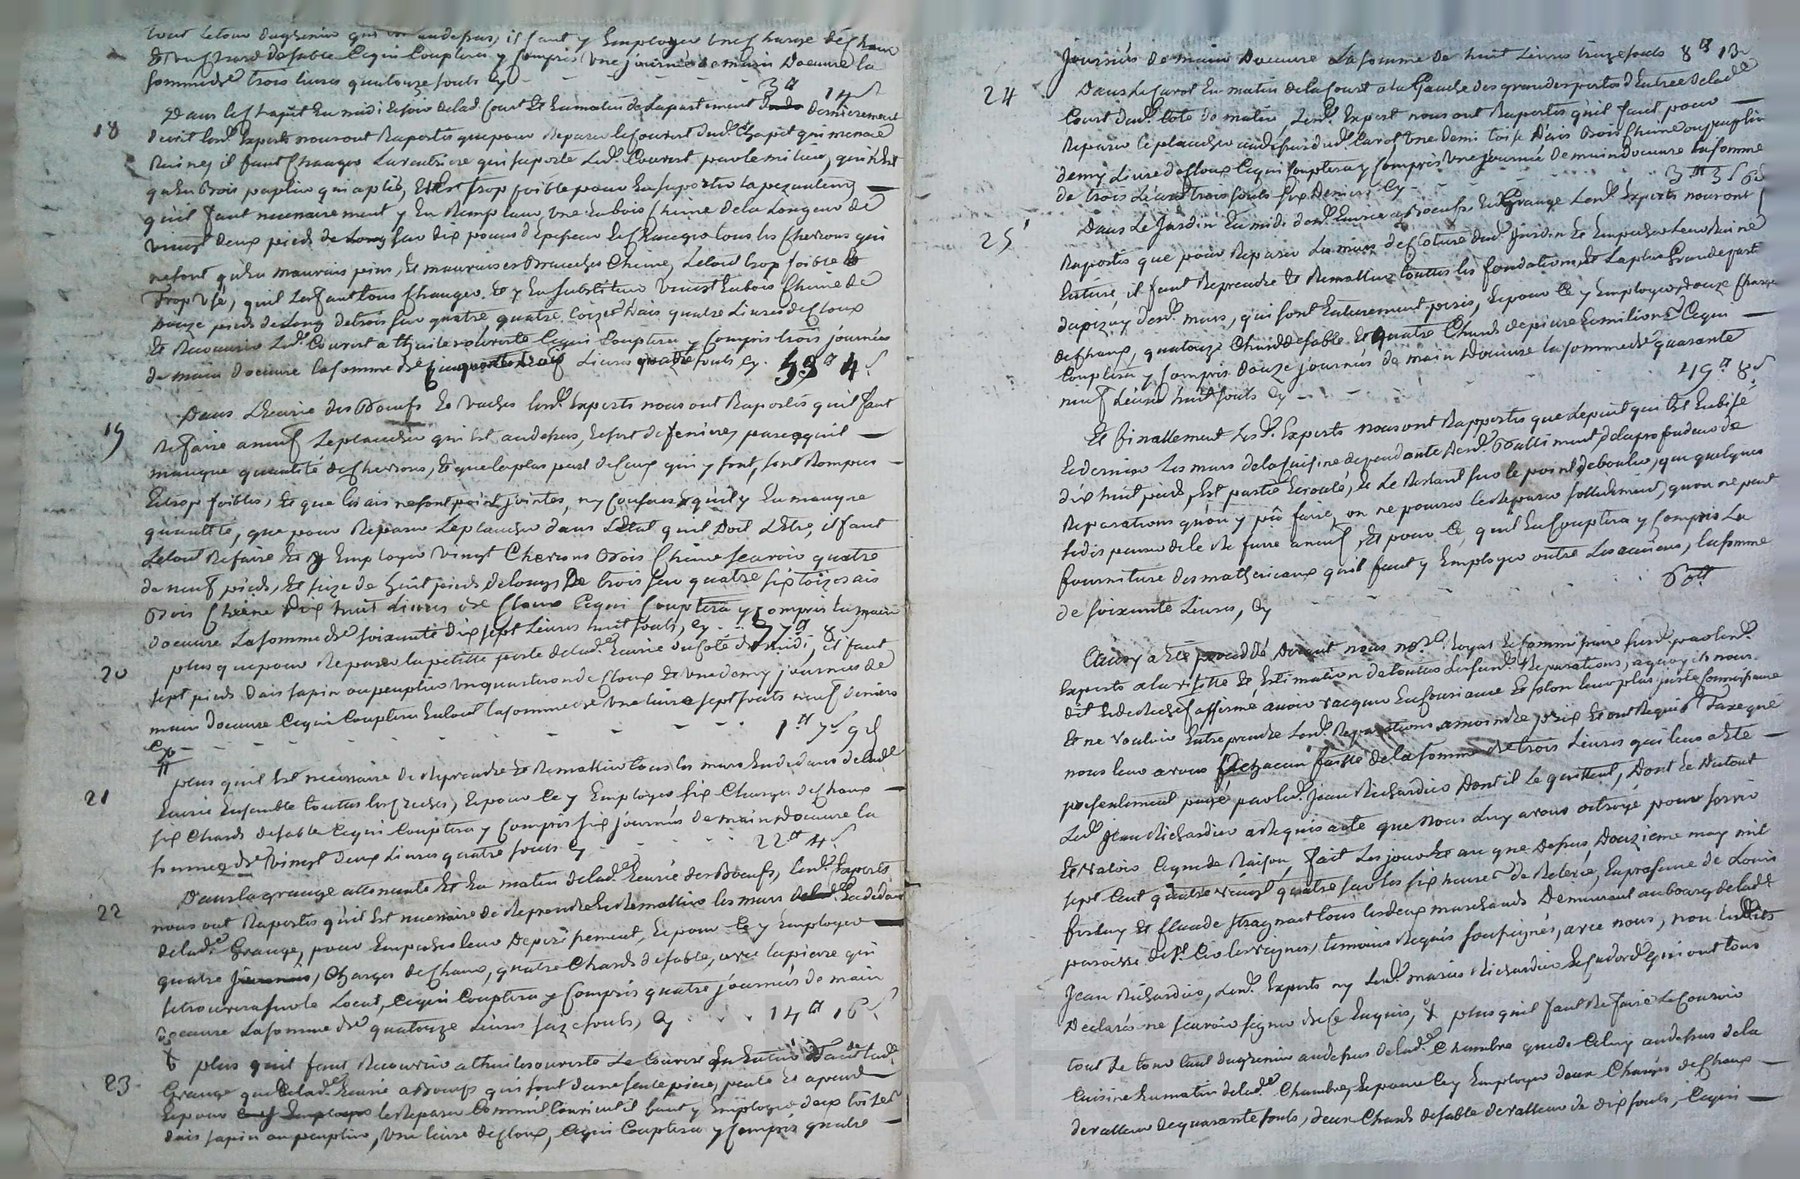 tout letour dugrenier qui est audessus, il faut y Employer une charge de chaux
et un chard de sable Cequi Couptera y Compris une journée de main Doeuvre la
Somme de trois livres quatorze souls Cy 3 lt 14 s
18 Dans le chapit En midi et soir delad. Court Et En matin de Lapartement dernierement
decrit lesd. Experts nous ont Raportés que pour Reparer le couvert dud. Chapit qui menace
Ruine, il faut Changer La ravtiere qui suporte Led. Couvert, par le milieu, qui n'est
qu'en Bois puplier qui a plié, Et Est trop foible pour En suporter la pezanteur
qu'il faut necessairement y En Remplacer une En bois Chene de la Longeur de
vingt deux pieds de Long sur dix pouces d'Epesseur Et Changer tous les chevrons qui
ne sont qu'En mauvais pins, Et mauvaises Branches Chene, Le tout trop foible &
Trop usé, qu'il Les faut tous changer, Et y En substituer vingt En bois Chene de
Douze pieds de Long de trois sur quatre quatre toizes D'ais quatre Livres de cloux
Et Recouvrir Led. Couvert a thuile ouverte Cequi Couptera y Compris trois journées
de main doeuvre la somme de Cinquante neuf Livres quatre souls Cy 59 lt 4 s
19 Dans L'Ecurie des Boeufs Et Vaches lesd. Experts nous ont Raportés qu'il faut
Refaire aneuf Le plancher qui Est audessus, Et sert de feniere, parce qu'il
manque quantité de chevrons, Et que la plus part de Ceux qui y sont, sont Rompus
Et trop foibles, Et que les ais ne sont point jointes, ny Cousus & qu'il y En manque
quantité, que pour Reparer Le plancher dans L'Etat qu'il Doit L'Etre, il faut
Le tout Refaire Et y Employer vingt Chevrons Bois Chene scavoir quatre
de neuf pieds, Et seize de huit pieds de long, De trois sur quatre six toizes ais
Bois Chene Dix huit Livres de Cloux Cequi Couptera y Compris la main
doeuvre La somme de soixante dix sept Livres huit souls, Cy 77 lt 8
20 plus que pour Reparer la petite porte de lad. Ecurie du coté de midi, il faut
sept pieds d'ais sapin ou peuplier un quarteron de cloux Et une demy journée de
main doeuvre Cequi Couptera En tout la somme de une livre sept souls neuf deniers
Cy 1 lt 7 s 9 d
21 plus qu'il Est necessaire de Reprendre Et Remattier tous les murs En dedans de lad.
Ecurie Ensemble toutes les creches, Et pour Ce y Employer six Charges de Chaux
six Chards de sable Cequi Couptera y Compris six journées de main doeuvre la
somme de vingt deux Livres quatre souls Cy 22 lt 4 s
22 Dans la grange attenante Et En matin de lad. Ecurie des Boeufs, lesd. Experts
nous ont Raportés qu'il Est necessaire de Reprendre Et Remattier les murs En dedans
de lad. Grange, pour Empecher leur Deperissement, Et pour Ce y Employer
quatre Charges de Chaux, quatre Chards de sable, avec la pierre qui
se trouvera sur le Local, Cequi Couptera y Compris quatre journées de main
doeuvre La somme de quatorze Livres seize souls, Cy 14 lt 16 s
23 plus qu'il faut Recouvrir a thuile ouverte Le Couvert En Entier de lad.
Grange que de lad. Ecurie a Boeufs qui sont dans seule piece,
Et pour le Reparer Comm'il Convient il faut y Employer deux toizes
d'ais sapin ou peuplier, une livre de cloux, Cequi Couptera y Compris quatre
Journées de main Doeuvre La somme de huit Livres treize souls 8 lt 13
24 Dans Le Carot En matin de la Court a la Gauche des grandes portes d'Entrée de lad.
Court dud. Coté de matin, Lesd. Expert nous ont Raportés qu'il faut pour
Reparer le plancher audessus dud. Carot une demi toise D'ais Bois Chene ou puplier
demy Livre de cloux Cequi Couptera y Compris une journée de main doeuvre la somme
de trois Livres trois souls six Deniers Cy 3 lt 3 s 6 d
25 Dans Le Jardin En midi desd. Ecurie a Boeufs Et Grange Lesd. Experts nous ont
Raportés que pour Reparer Les murs de cloture dud. Jardin Et Empecher Leur Ruine
Entiere, il faut Reprendre Et Remattier touttes les fondations, et La plus Grande part
du pizay desd. murs, qui sont Entierement peris, Et pour Ce y Employer, douze Charges
de Chaux, quatorze Chards de sable Et quatre Chards de pierre Cequi
Couptera y Compris douze journées de main doeuvre la somme de quarante
neuf Livres huit souls Cy 49 lt 8 s
Et finallement Lesd. Experts nous ont Rapportés que depuis
Les murs de la Cuisine dependante desd. Battiment de la profondeur de
dix huit pieds, Est partie Ecroulé, Et Le Restant sur le point d'ebouler, que quelques
Reparations qu'on y put faire, on ne pourra les Reparer sollidement, qu'on ne peut
se dispenser de le Refaire aneuf, Et pour Ce, qu'il En Couptera y Compris La
fourniture des matheriaux qu'il faut y Employer outre Les anciens, la somme
de soixante Livres, Cy 60 lt
Ainsy a Eté procedé Devant nous no.re Royal Et Commissaire susd. par lesd.
Experts a la visitte Et Estimation de toutes Les susd. Reparations, a quoy ils nous
dit Et de Rechef affirmé avoir vacqué En Consciance Et selon leur plus juste Connoissance
Et ne vouloir Entreprendre Lesd. Reparations a moindre prix Et ont Requis Taxe que
nous leur avons a Chacun faitte de la somme de trois Livres qui leur a Eté
presentement payé par led. Jean Richardier Dont il Le quittent, Dont & De tout
Led. Jean Richardier a Requis acte que Nous Luy avons octroyé pour servir
Et valoir Ce que de Raison, fait Les jour Et an que Dessus, Douzieme may mil
sept Cent quatre vingt quatre sur les six heures de Relevé, En presance de Louis
et Claude tous les deux marchands Demeurant au bourg de lad.
paroisse de St. temoins Requis soussignés, avec nous, non Lesd.
Jean Richardier, Lesd. Experts ny Led. marie Richardier qui ont tous
Declarés ne scavoir signer de Ce Enquis, & plus qu'il faut Refaire Le Couvert
tout Le tour tant du grenier audessus de lad. Chambre que de Celuy audessus de la
Cuisine En matin de lad. Chambre, Et pour Ce y Employer deux Charges de Chaux
de valleur de quarante souls, deux Chards de sable de valleur de dix souls, Cequi